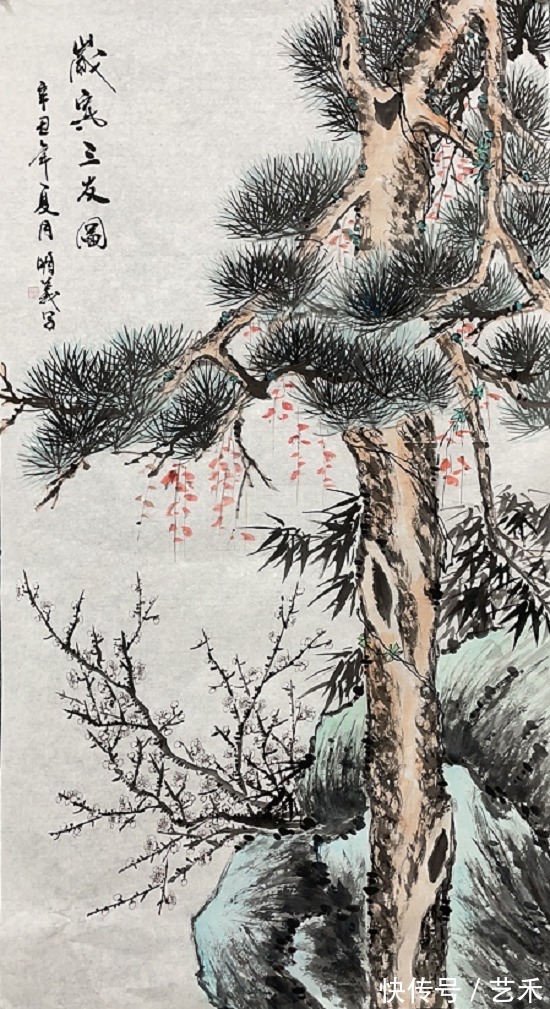 歲寒三友圖
辛丑年夏月明義寫
快传号 / 艺禾